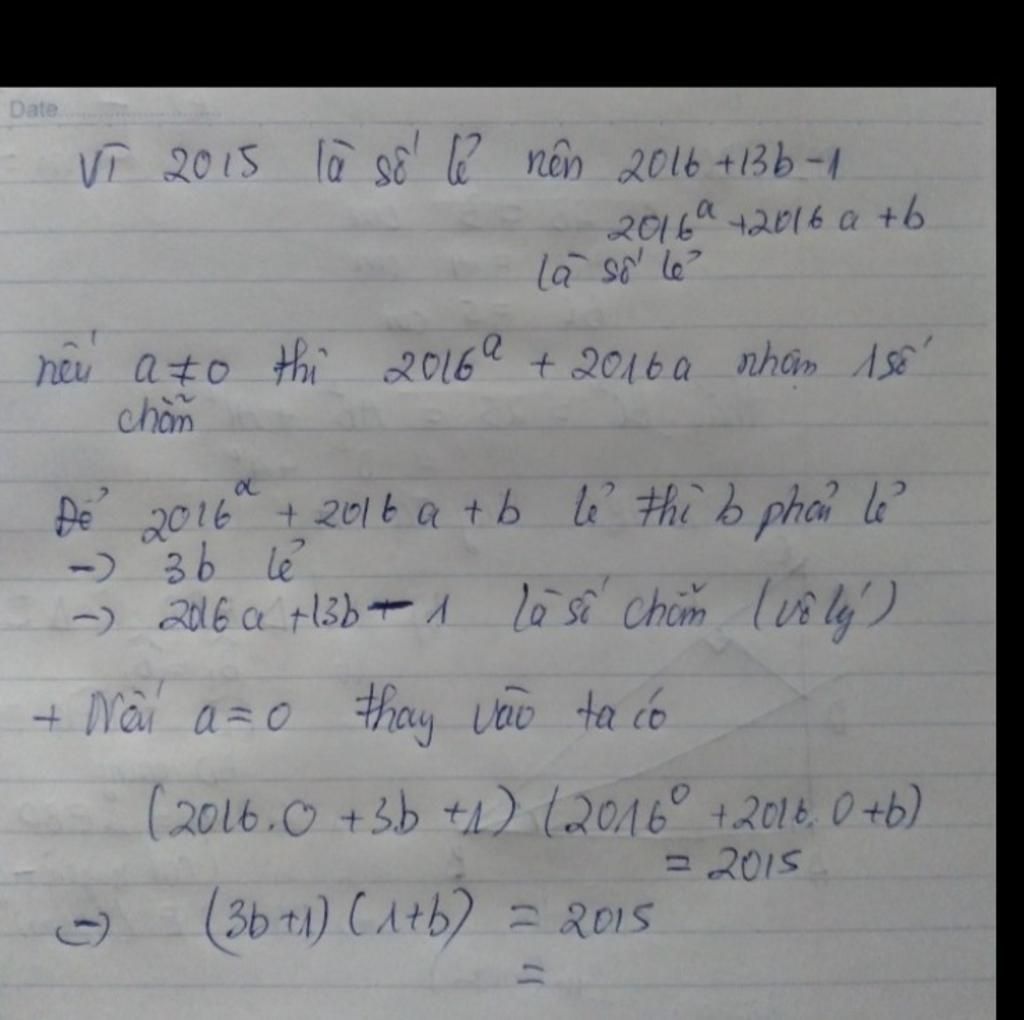 Date
Vì 2015 là số lẻ nên 2016 + 13b - 1
2016^a + 2016a + b
là số lẻ
nếu a ≠ 0 thì 2016^a + 2016a nhận 1 số
chẵn
Để 2016^a + 2016a + b lẻ thì b phải lẻ
-> 3b lẻ
-> 2016a + 13b - 1 là số chẵn (vô lý)
+ Nếu a = 0 thay vào ta có
(2016.0 + 3b + 1) (2016^0 + 2016.0 + b)
= 2015
=> (3b+1) (1+b) = 2015
=